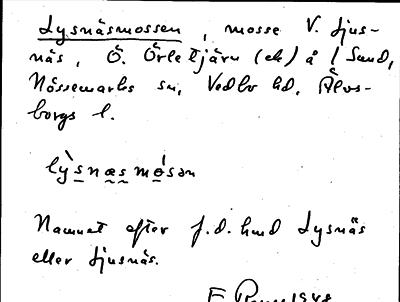 Lysnäsmossen, mosse V. Ljus-
näs, Ö. Örletjärn (ek) å l Sund,
Nössemarks sn, Vedbo hd, Älvs-
borgs l.
lỳsnæsmósən
Namnat efter f.d. hmd Lysnäs
eller Ljusnäs.
1948